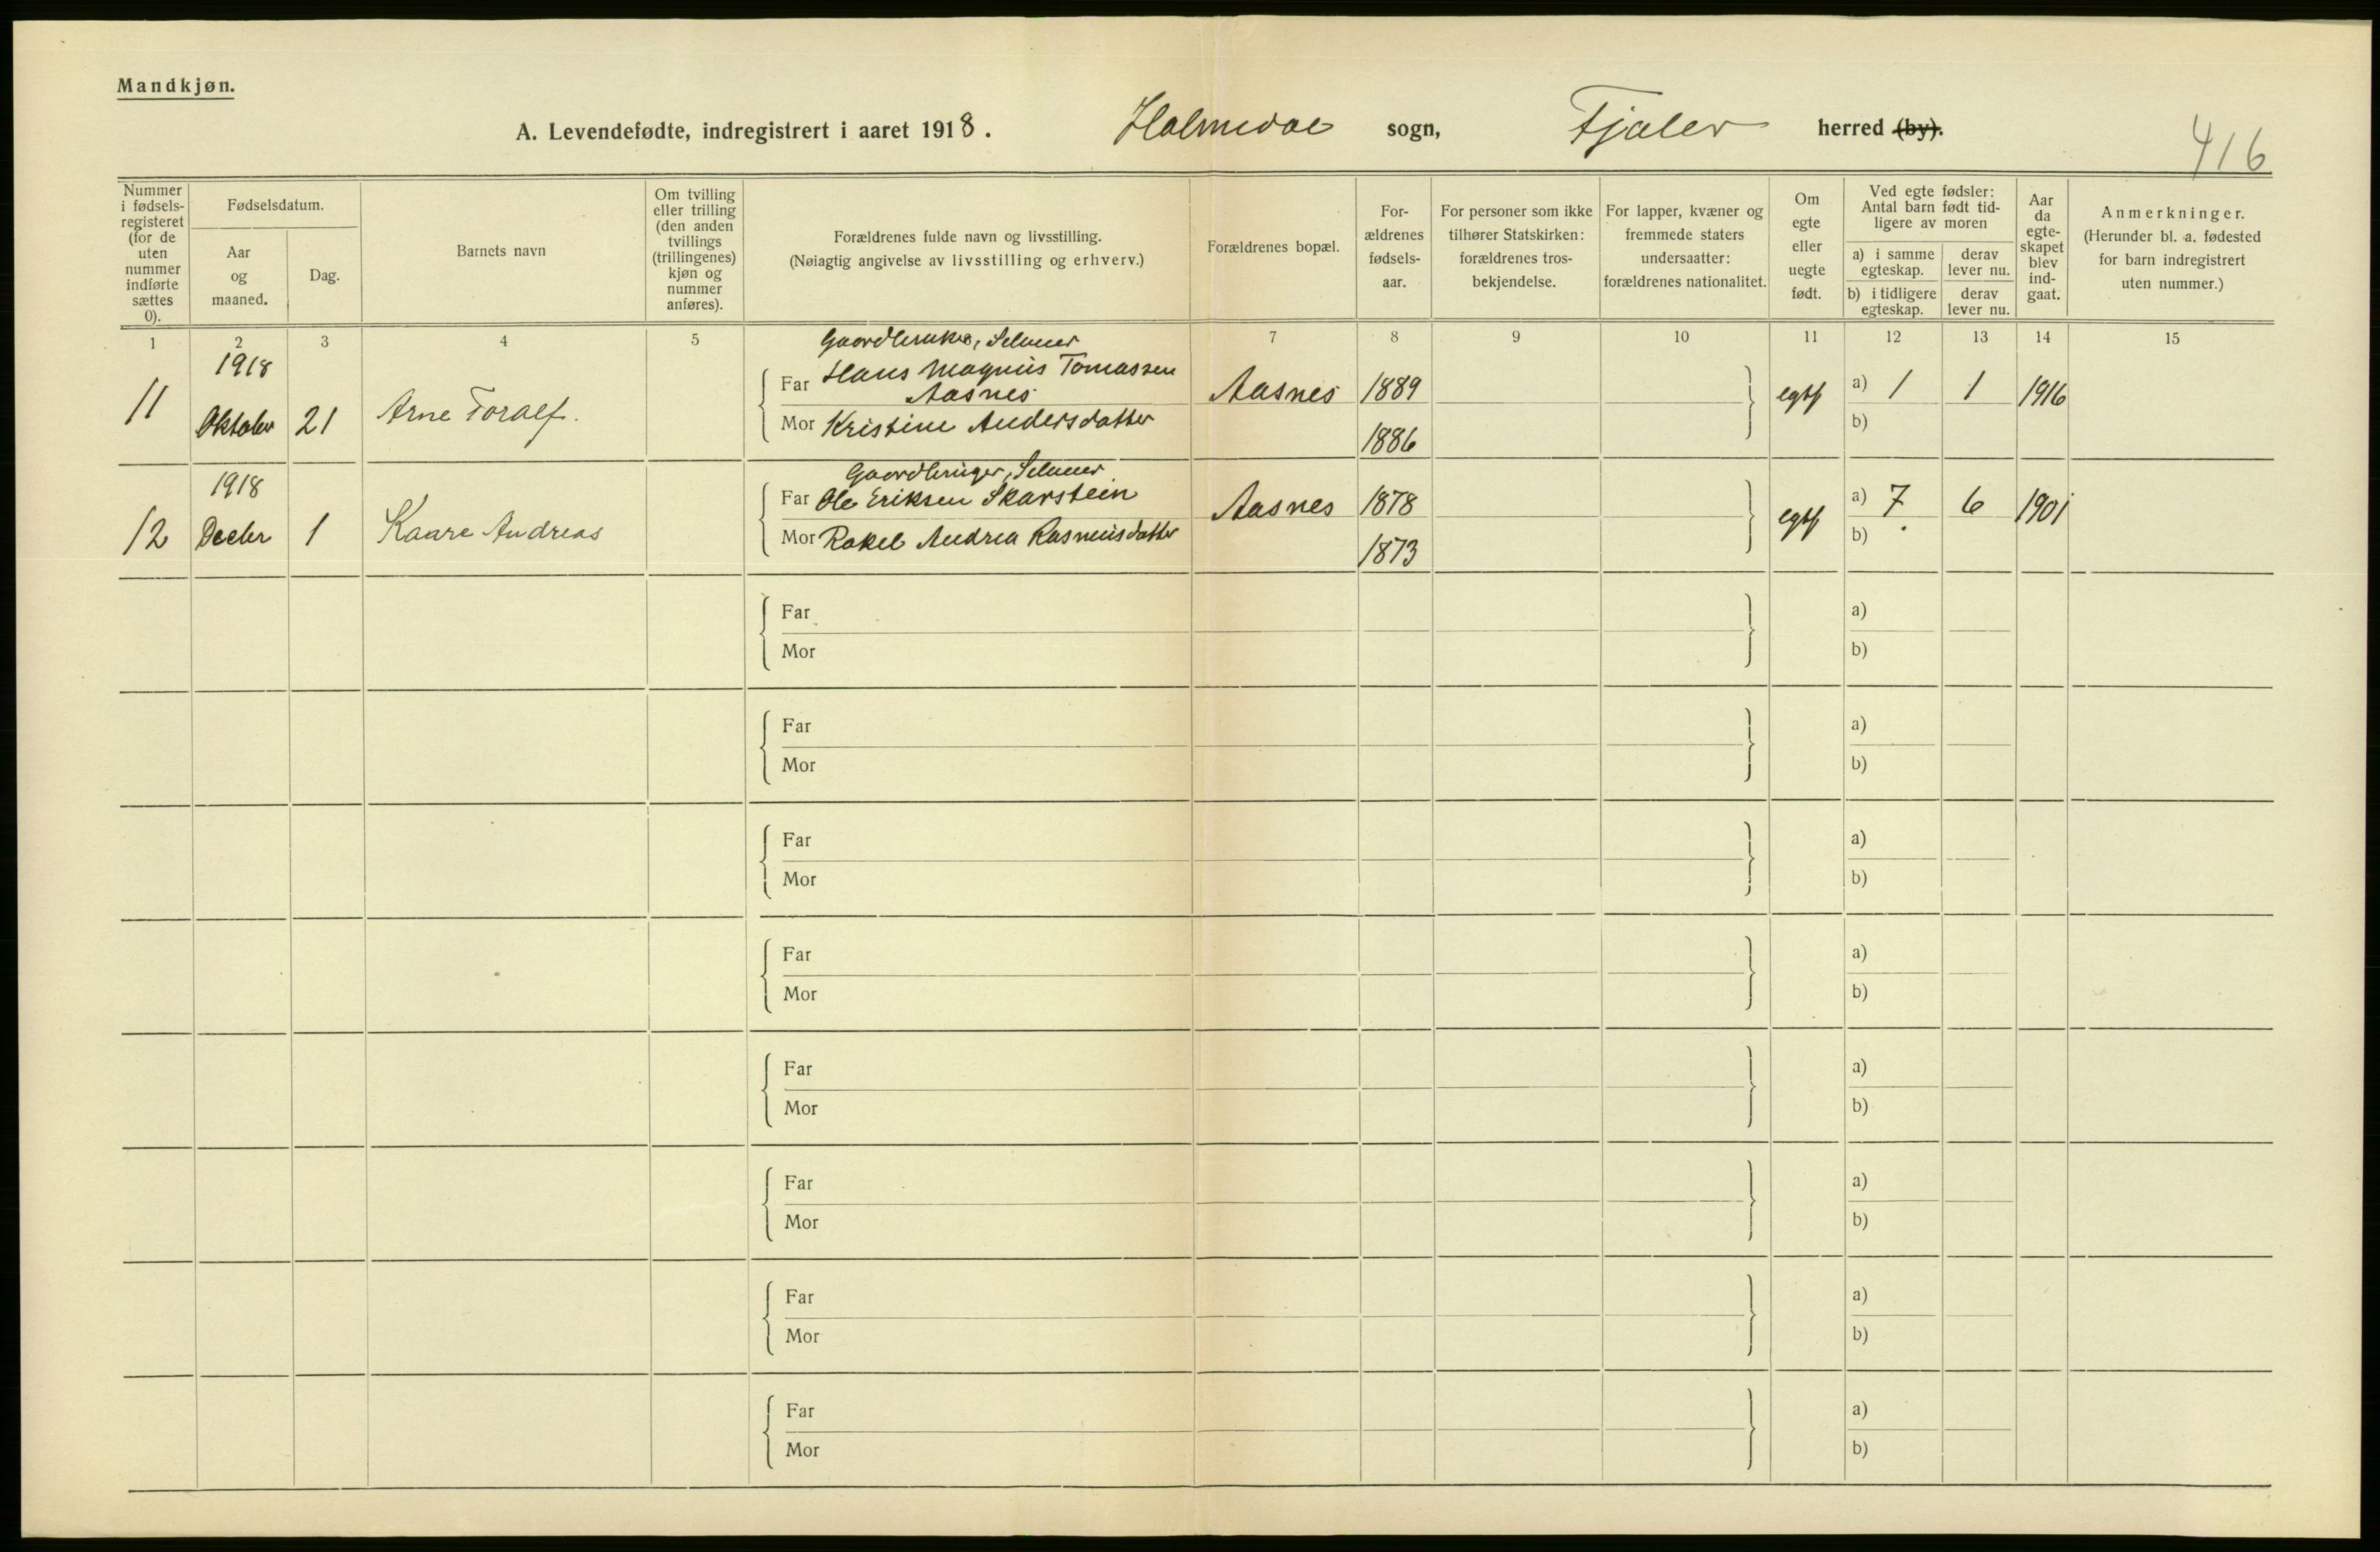 Mandkjøn.
A. Levendefødte, indregistrert i aaret 1918. Holmedal sogn, Fjaler herred (by).
416
Nummer i fødsels-registeret (for de uten nummer indførte sættes 0).
Fødselsdatum.
Aar og maaned.
Dag.
Barnets navn
Om tvilling eller trilling (den anden tvillings (trillingenes) kjøn og nummer anføres).
Forældrenes fulde navn og livsstilling.
(Nøiagtig angivelse av livsstilling og erhverv.)
Forældrenes bopæl.
For-ældrenes fødsels-aar.
For personer som ikke tilhører Statskirken: forældrenes tros-bekjendelse.
For lapper, kvæner og fremmede staters undersaatter: forældrenes nationalitet.
Om egte eller uegte født.
Ved egte fødsler: Antal barn født tid-ligere av moren
a) i samme egteskap.
derav lever nu.
b) i tidligere egteskap.
derav lever nu.
Aar da egte-skapet blev ind-gaat.
Anmerkninger.
(Herunder bl. a. fødested for barn indregistrert uten nummer.)
1 2 3 4 5 7 8 9 10 11 12 13 14 15
Gaardbruker, Selveier
11 1918 Oktober 21 Arne Toralf.
Far Hans Magnus Tomassen Aasnes Aasnes 1889 egte a) 1 1 1916
Mor Kristine Andersdatter 1886 b)
Gaardbruger, Selveier
12 1918 Decbr 1 Kaare Andreas
Far Ole Eriksen Skarstein Aasnes 1878 egte a) 7 6 1901
Mor Rakel Andrea Rasmusdatter 1873 b)
Far a)
Mor b)
Far a)
Mor b)
Far a)
Mor b)
Far a)
Mor b)
Far a)
Mor b)
Far a)
Mor b)
Far a)
Mor b)
Far a)
Mor b)